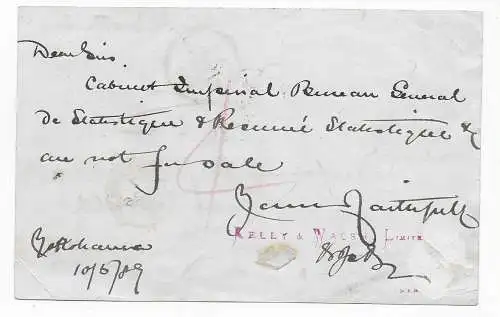 Dear Sir,
Cabinet Imperial Bureau General
De Statistique & Resumé Statistique &c
are not for sale
Yours faithfully
KELLY & WALSH LIMITE
Yokohama
10/5/89